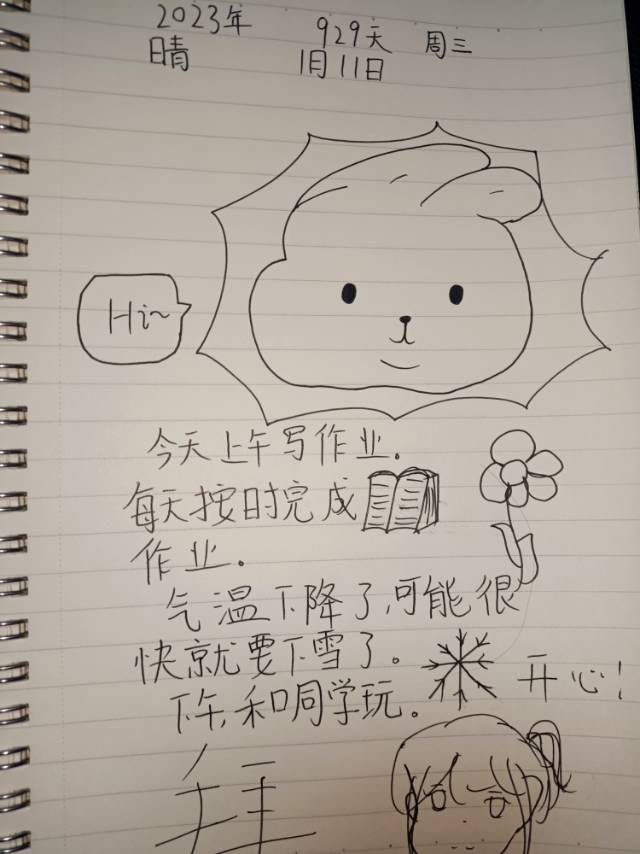 2023年 929天 周三
晴 1月11日
Hi~
今天上午写作业.
每天按时完成
作业.
气温下降了,可能很
快就要下雪了。
开心!
下午,和同学玩。